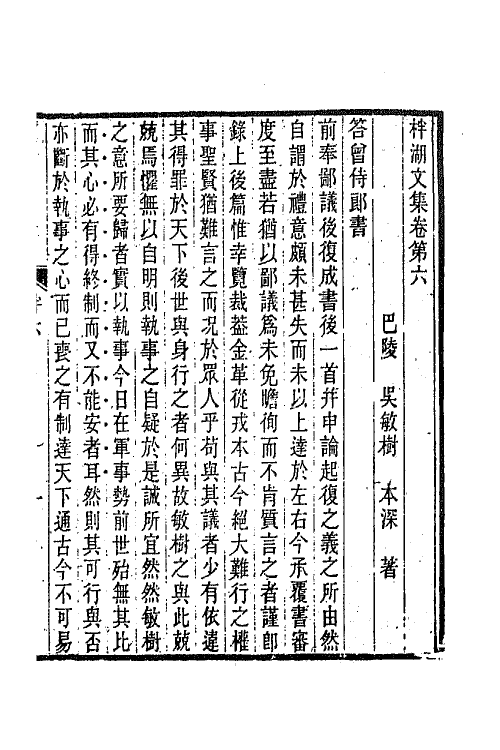 柈湖文集卷第六
巴陵 吳敏樹 本深 著
答曾侍郎書
前奉鄙議後復成書後一首幷申論起復之義之所由然
自謂於禮意頗未甚失而未以上達於左右今承覆書審
度至盡若猶以鄙議爲未免瞻徇而不肯質言之者謹卽
錄上後篇惟幸覽裁葢金革從戎本古今絕大難行之權
事聖賢猶難言之而况於眾人乎苟與其議者少有依違
其得罪於天下後世與身行之者何異故敏樹之與此兢
兢焉懼無以自明則執事之自疑於是誠所宜然然敏樹
之意所要歸者實以執事今日在軍事勢前世殆無其比
而其心必有得終制而又不能安者耳然則其可行與否
亦斷於執事之心而已喪之有制達天下通古今不可易